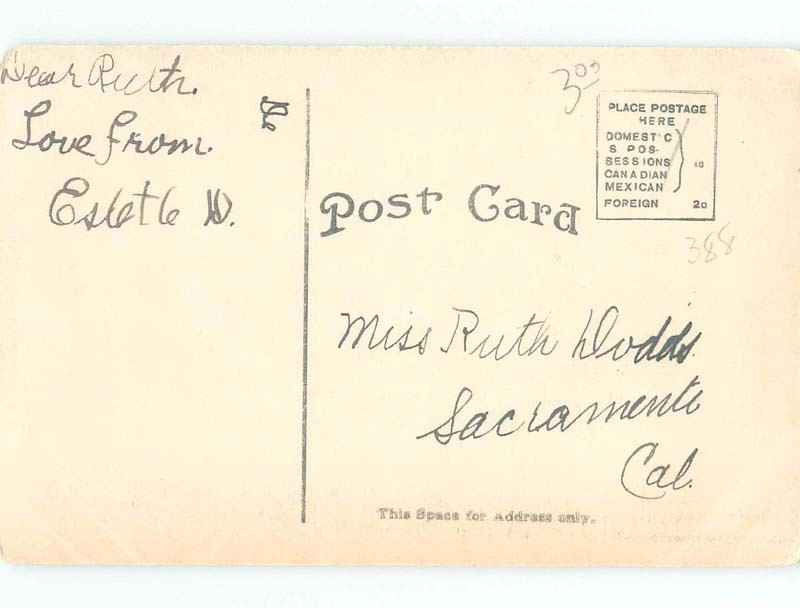 Dear Ruth.
Love from.
Estele D.
3.00
PLACE POSTAGE
HERE
DOMESTIC
S POS-
SESSIONS
CANADIAN
MEXICAN
1c
FOREIGN 2c
Post Card
388
Miss Ruth Dodds.
Sacramento
Cal.
This Space for Address only.